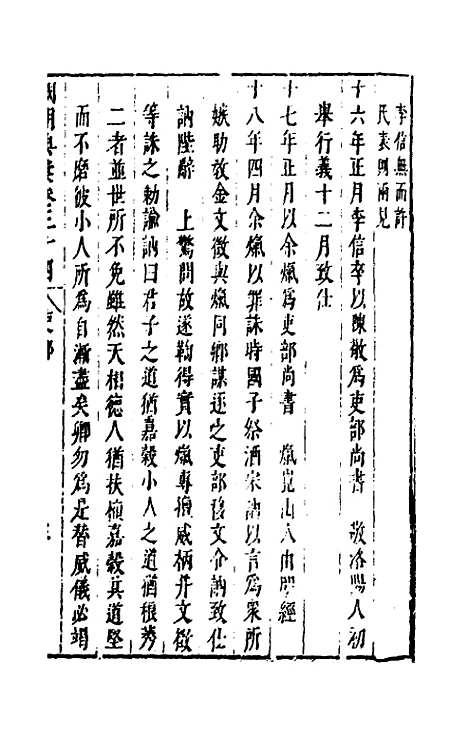 李信無而許
氏表則兩見
十六年正月李信卒以陳敬爲吏部尚書　敬洛陽人初
舉行義十二月致仕
十七年正月以余熂爲吏部尚書　熂崑山人由明經
十八年四月余熂以罪誅時國子祭酒宋訥以言爲衆所
嫉助教金文徵與熂同鄉謀逐之吏部移文令訥致仕
訥陛辭　上驚問故遂鞫得實以熂專擅威柄并文徵
等誅之勅諭訥曰君子之道猶嘉穀小人之道猶稂莠
二者並世所不免雖然天相德人猶扶植嘉穀其道堅
而不磨彼小人所爲自漸盡矣卿勿爲是替威儀必竭
卷之三十四　吏部